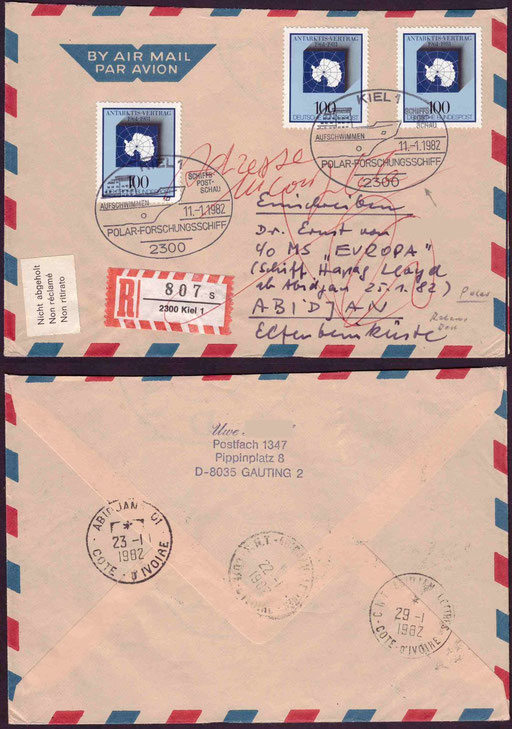 BY AIR MAIL
PAR AVION
ANTARKTIS-VERTRAG
1961-1981
100
DEUTSCHE BUNDESPOST
ANTARKTIS-VERTRAG
1961-1981
100
DEUTSCHE BUNDESPOST
ANTARKTIS-VERTRAG
1961-1981
100
KIEL 1
AUFSCHWIMMEN
SCHIFFS-
POST-
SCHAU
11.-1.1982
POLAR-FORSCHUNGSSCHIFF
2300
KIEL 1
AUFSCHWIMMEN
SCHIFFS-
POST-
SCHAU
11.-1.1982
POLAR-FORSCHUNGSSCHIFF
2300
Adresse
Einschreiben
Dr. Ernst von
c/o MS "EUROPA"
(Schiff Hapag Lloyd
ab Abidjan 25.1.82)
ABIDJAN
Elfenbeinküste
Nicht abgeholt
Non réclamé
Non ritirato
R
807 s
2300 Kiel 1
Uwe
Postfach 1347
Pippinplatz 8
D-8035 GAUTING 2
ABIDJAN 01
23-1
1982
COTE-D'IVOIRE
22-1
29-1
1982
COTE-D'IVOIRE